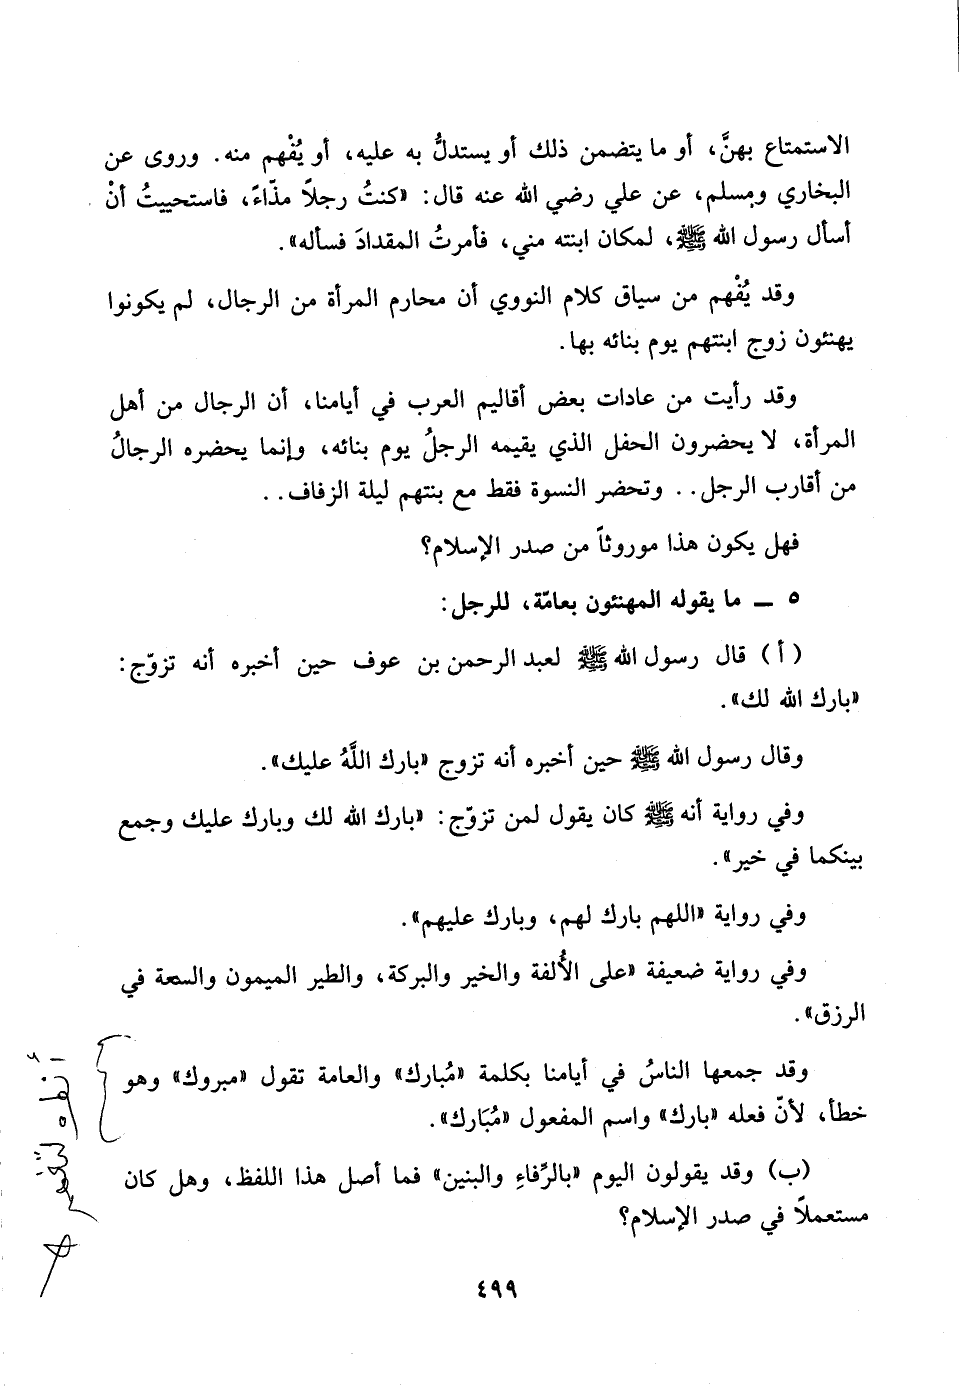 الاستمتاع بهنَّ، أو ما يتضمن ذلك أو يستدلُّ به عليه، أو يُفْهم منه. وروى عن
البخاري ومسلم، عن علي رضي الله عنه قال: «كنتُ رجلاً مذّاءً، فاستحييتُ أنْ
أسأل رسول الله ﷺ، لمكان ابنته مني، فأمرتُ المقدادَ فسأله».
وقد يُفْهم من سياق كلام النووي أن محارم المرأة من الرجال، لم يكونوا
يهنئون زوج ابنتهم يوم بنائه بها.
وقد رأيت من عادات بعض أقاليم العرب في أيامنا، أن الرجال من أهل
المرأة، لا يحضرون الحفل الذي يقيمه الرجلُ يوم بنائه، وإنما يحضره الرجالُ
من أقارب الرجل.. وتحضر النسوة فقط مع بنتهم ليلة الزفاف..
فهل يكون هذا موروثاً من صدر الإسلام؟
٥ ــ ما يقوله المهنئون بعامّة، للرجل:
(أ) قال رسول الله ﷺ لعبد الرحمن بن عوف حين أخبره أنه تزوّج:
«بارك الله لك».
وقال رسول الله ﷺ حين أخبره أنه تزوج «بارك اللَّهُ عليك».
وفي رواية أنه ﷺ كان يقول لمن تزوّج: «بارك الله لك وبارك عليك وجمع
بينكما في خير».
وفي رواية «اللهم بارك لهم، وبارك عليهم».
وفي رواية ضعيفة «على الأُلفة والخير والبركة، والطير الميمون والسعة في
الرزق».
وقد جمعها الناسُ في أيامنا بكلمة «مُبارك» والعامة تقول «مبروك» وهو
خطأ، لأنّ فعله «بارك» واسم المفعول «مُبَارك».
(ب) وقد يقولون اليوم «بالرِّفاءِ والبنين» فما أصل هذا اللفظ، وهل كان
مستعملاً في صدر الإسلام؟
٤٩٩